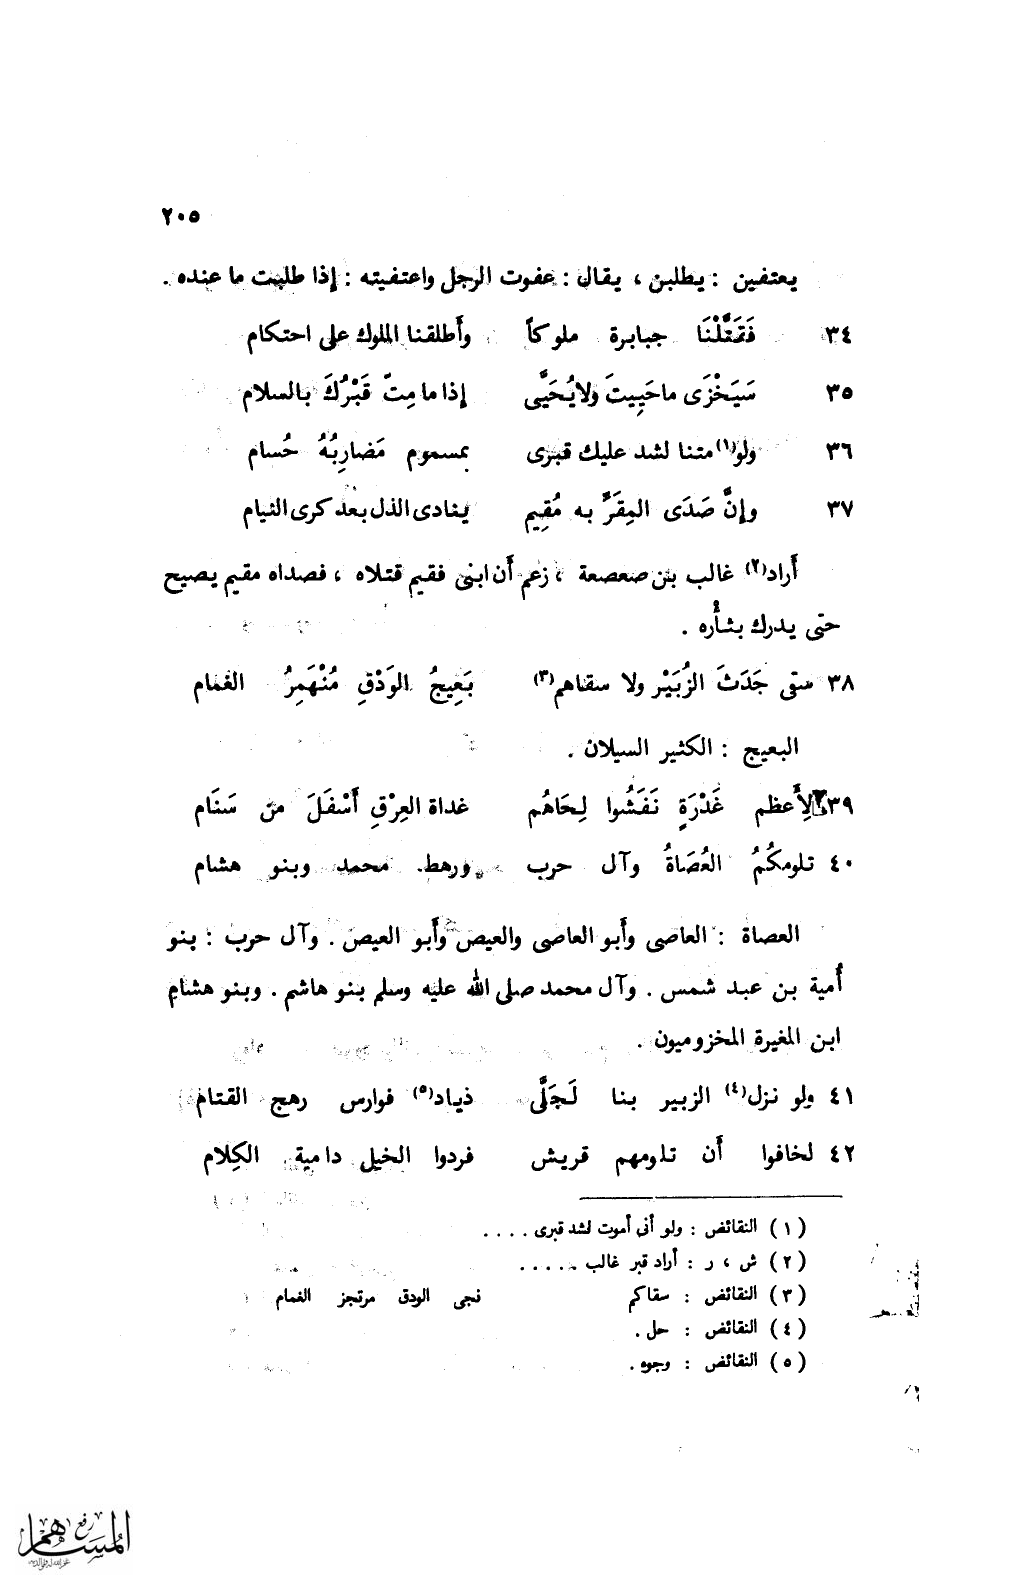 ٢٠٥
يعتفين : يطلبن ، يقال : عفوت الرجل واعتفيته : إذا طلبت ما عنده .
٣٤ فَقَتَّلْنَا جبابرة ملوكاً وأطلقنا الملوك على احتكام
٣٥ سَيَخْزَى ماحَيِيتَ ولايُحَيَّى إذا ما مِتّ قَبْرُكَ بالسلام
٣٦ ولو(١) متنا لشد عليك قبرى بمسموم مَضارِبُهُ حُسام
٣٧ وإنَّ صَدَى المِقَرِّ به مُقِيم ينادى الذل بعد كرى النيام
أراد(٢) غالب بن صعصعة ، زعم أن ابنى فقيم قتلاه ، فصداه مقيم يصيح
حتى يدرك بثأره .
٣٨ سقى جَدَثَ الزُبَيْر ولا سقاهم(٣) بَعِيجُ الوَدْقِ مُنْهَمِرُ الغمام
البعيج : الكثير السيلان .
٣٩ لِأَعظم غَدْرَةٍ نَفَشُوا لِحَاهُم غداة العِرْقِ أَسْفَلَ من سَنَام
٤٠ تلومكُمُ العُصَاةُ وآل حرب ورهط محمد وبنو هشام
العصاة : العاصى وأبو العاصى والعيص وأبو العيص . وآل حرب : بنو
أمية بن عبد شمس . وآل محمد صلى الله عليه وسلم بنو هاشم . وبنو هشام
ابن المغيرة المخزوميون .
٤١ ولو نزل(٤) الزبير بنا لَجَلَّى ذياد(٥) فوارس رهج القتام
٤٢ لخافوا أن تلومهم قريش فردوا الخيل دامية الكِلام
(١) النقائض : ولو أنى أموت لشد قبرى . . . .
(٢) ش ، ر : أراد قبر غالب . . . . .
(٣) النقائض : سقاكم نجى الودق مرتجز الغمام
(٤) النقائض : حل .
(٥) النقائض : وجوه .
رفع
المساهم